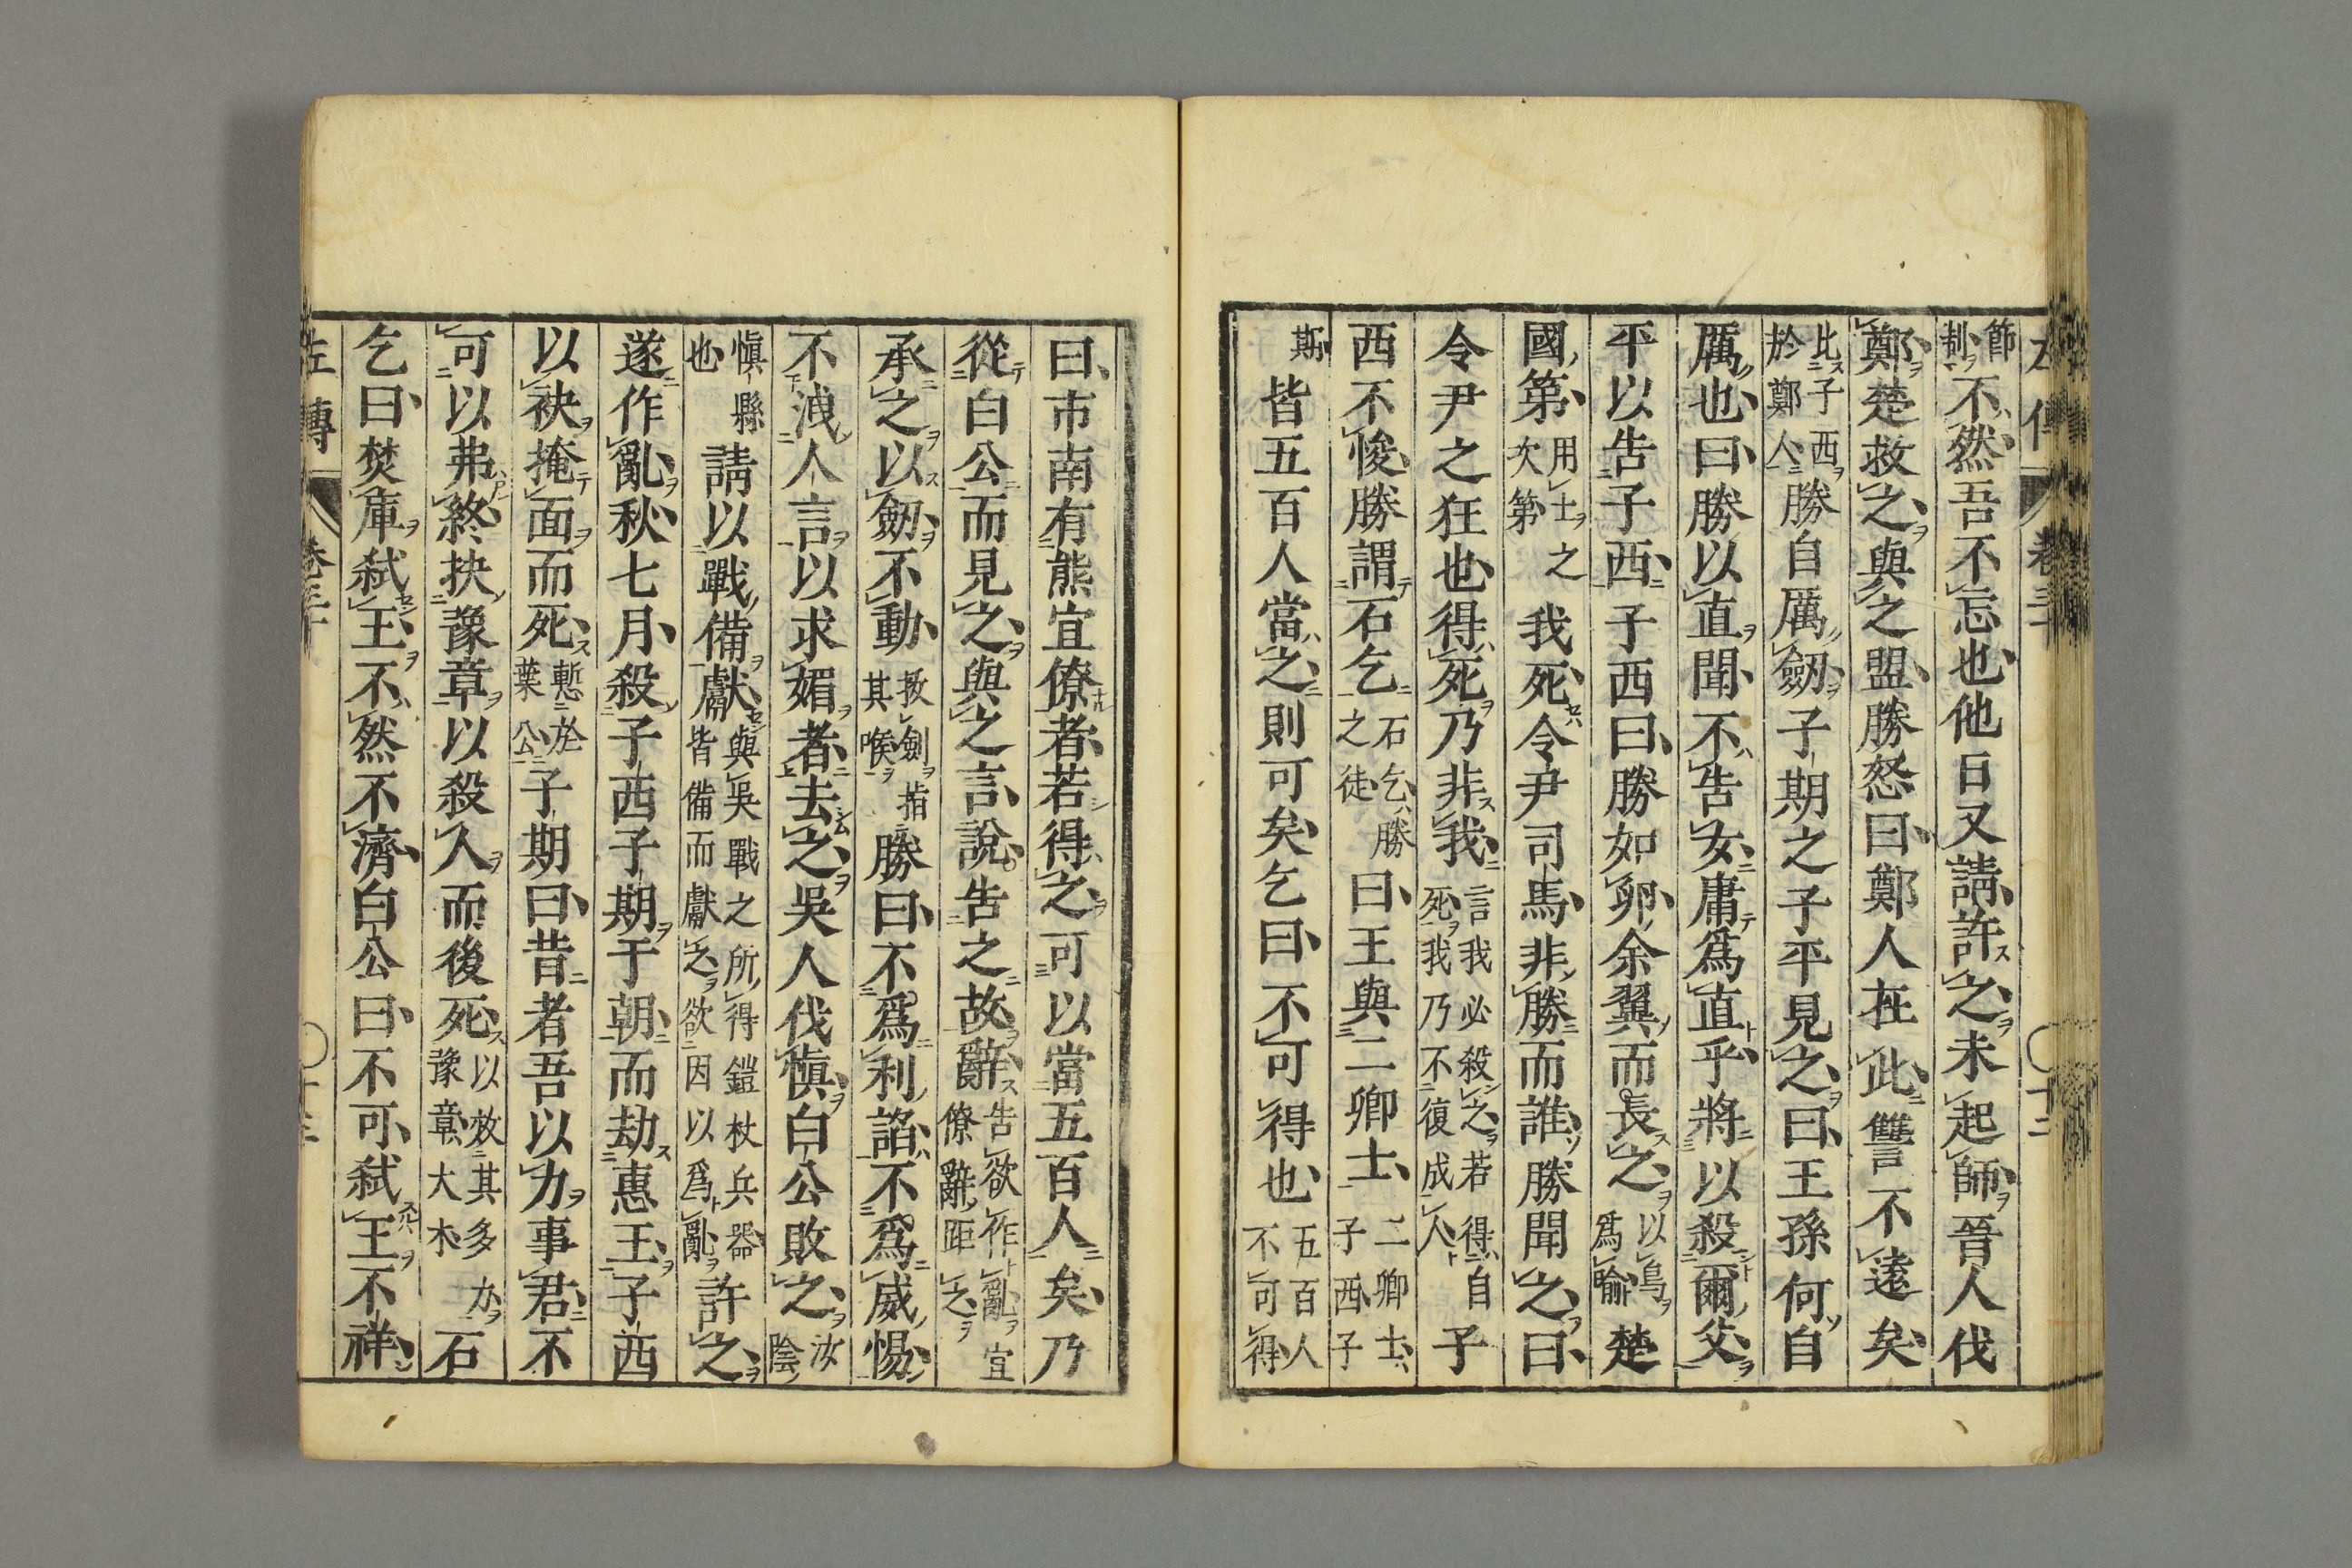 左傳 卷三十 〇十二
節制不然吾不忘也他日又請許之未起師晉人伐
鄭楚救之與之盟勝怒曰鄭人在此讐不遠矣
比子西於鄭人勝自厲劒子期之子平見之曰王孫何自
厲也曰勝以直聞不告女庸爲直乎將以殺爾父
平以告子西子西曰勝如卵余翼而長之以鳥爲喻楚
國第用士之次第我死令尹司馬非勝而誰勝聞之曰
令尹之狂也得死乃非我言我必殺之若得自死我乃不復成人子
西不悛勝謂石乞石乞勝之徒曰王與二卿士二卿士子西子
期皆五百人當之則可矣乞曰不可得也五百人不可得
曰市南有熊宜僚者若得之可以當五百人矣乃
從白公而見之與之言說告之故辭告欲作亂宜僚辭距之
承之以劒不動拔劍指其喉勝曰不爲利諂不爲威惕
不洩人言以求媚者去之吳人伐愼白公敗之汝陰
愼縣也請以戰備獻與吳戰之所得鎧杖兵器皆備而獻之欲因以爲亂許之
遂作亂秋七月殺子西子期于朝而劫惠王子西
以袂掩面而死慙於葉公子期曰昔者吾以力事君不
可以弗終抉豫章以殺人而後死以效其多力豫章大木石
乞曰焚庫弒王不然不濟白公曰不可弒王不祥
左傳 卷三十